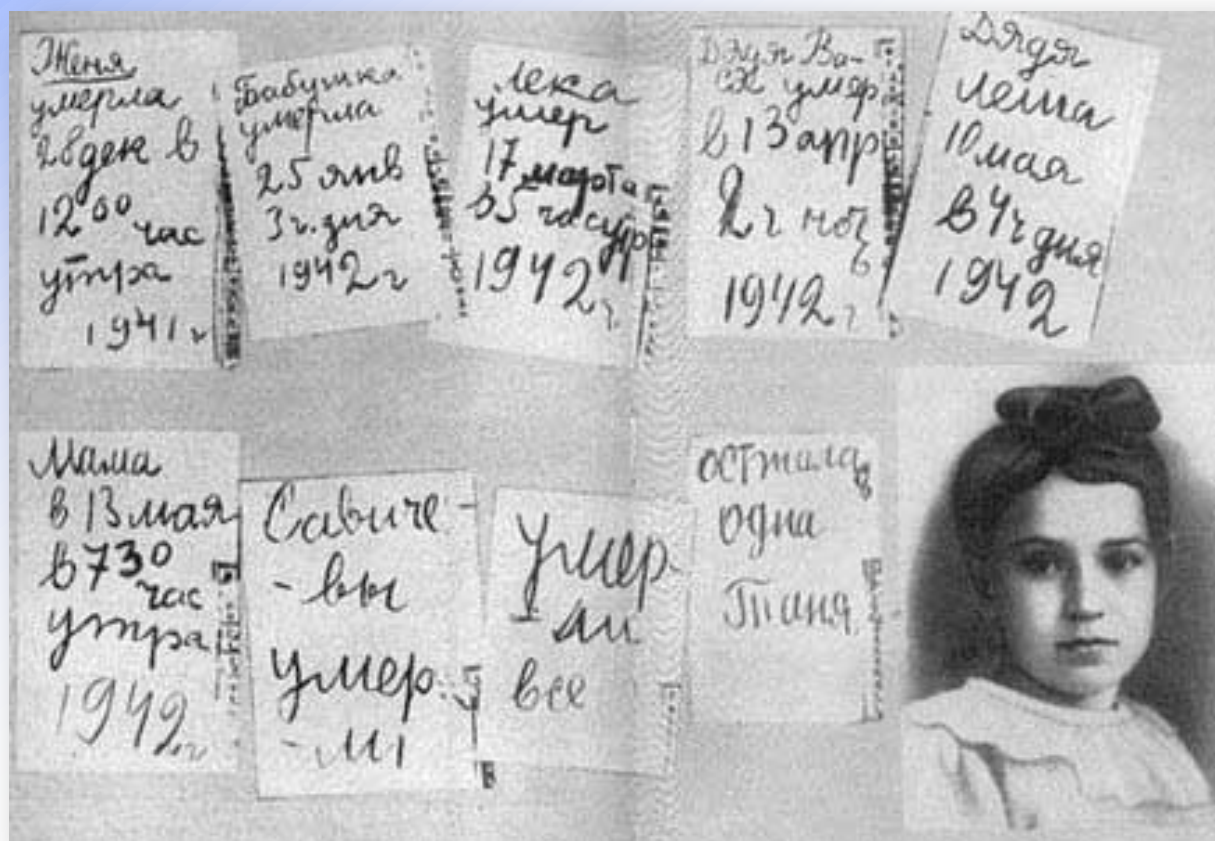 Женя
умерла
28 дек в
12 00 час
утра
1941 г
Бабушка
умерла
25 янв
3 ч. дня
1942 г
Лека
умер
17 марта
в 5 часутр
1942 г.
Дядя Ва-
ся умер
в 13 апр
2 ч ноч
ь
1942 г
Дядя
Леша
10 мая
в 4 ч дня
1942
Мама
в 13 мая
в 7 30
час
утра
1942 г
Савиче-
-вы
умер-
-ли
умер-
-ли
все
осталась
одна
Таня.